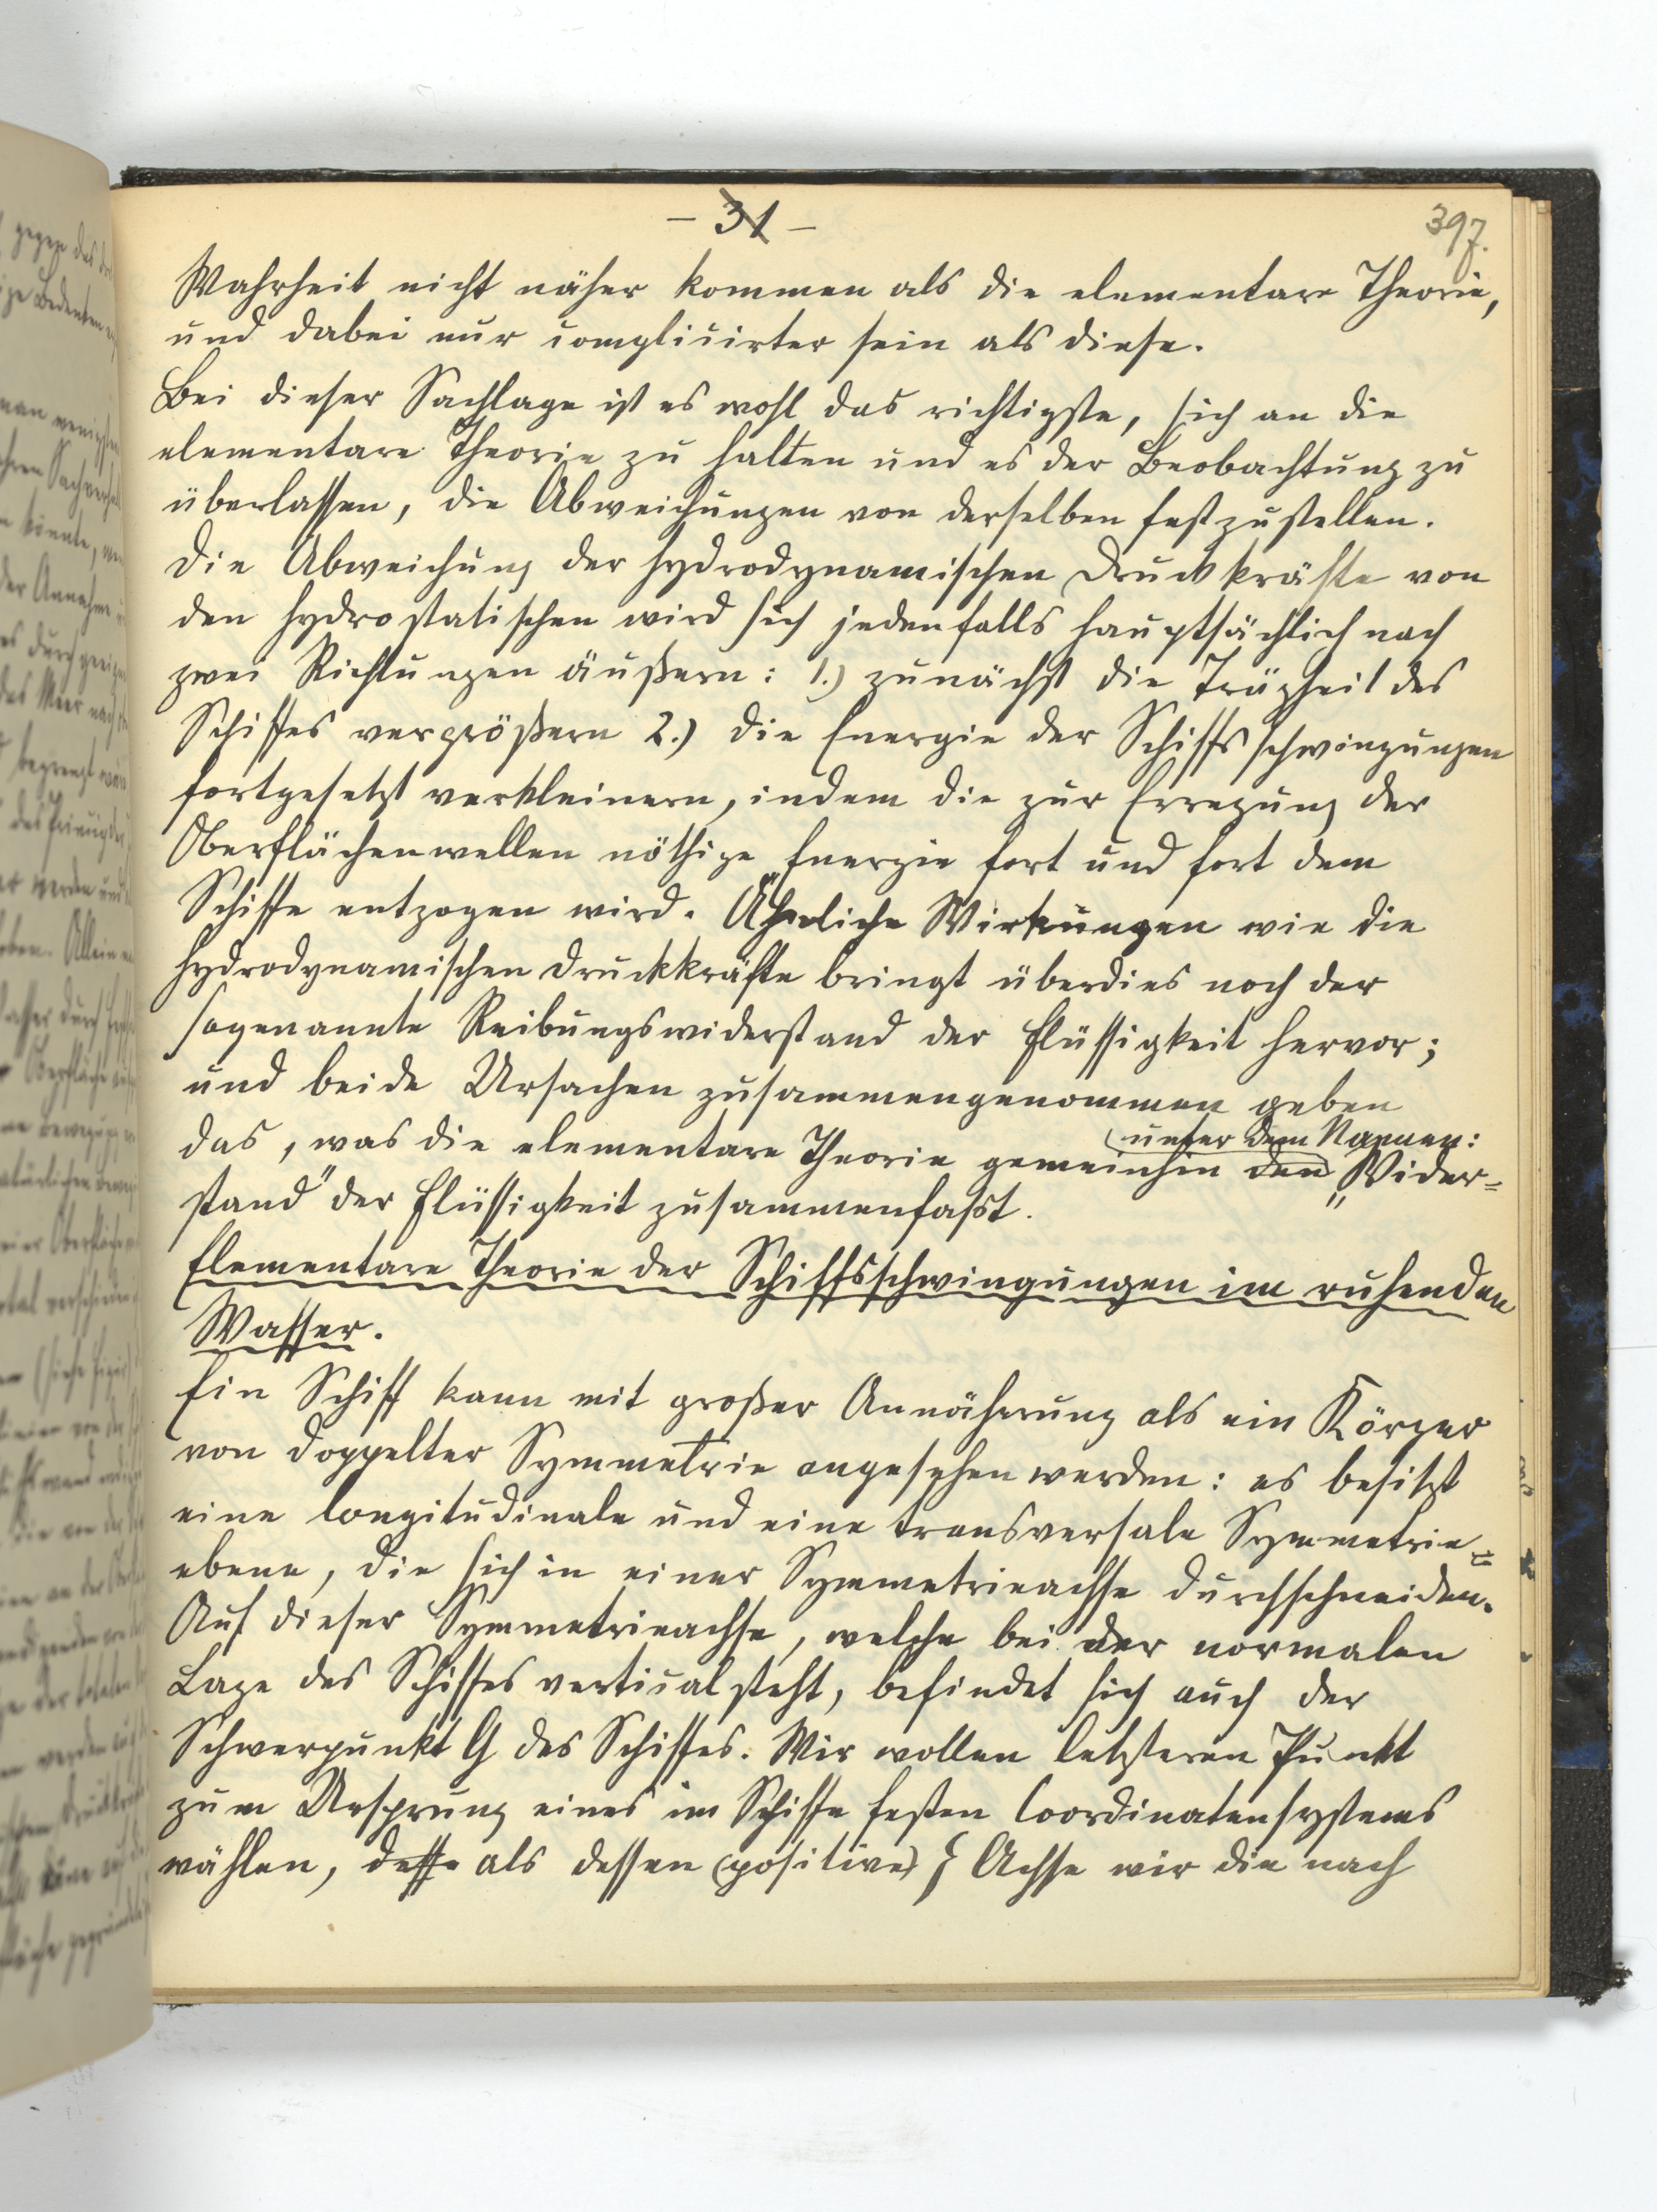 - 31 -
397.
Wahrheit nicht näher kommen als die elementare Theorie,
und dabei nur complicirter sein als diese.
Bei dieser Sachlage ist es wohl das richtigste, sich an die
elementare Theorie zu halten und es der Beobachtung zu
überlassen, die Abweichungen von derselben festzustellen.
Die Abweichung der hydrodynamischen Druckkräfte von
den hydrostatischen wird sich jedenfalls hauptsächlich nach
zwei Richtungen äußern: 1.) zunächst die Trägheit des
Schiffes vergrößern 2.) die Energie der Schiffsschwingungen
fortgesetzt verkleinern, indem die zur Erregung der
Oberflächenwellen nöthige Energie fort und fort dem
Schiffe entzogen wird. Ähnliche Wirkungen wie die
hydrodynamischen Druckkräfte bringt überdies noch der
sogenannte Reibungswiderstand der Flüssigkeit hervor;
und beide Ursachen zusammengenommen geben
unter dem Namen:
das, was die elementare Theorie gemeinhin den „Wider=
stand" der Flüssigkeit zusammenfaßt.
Elementare Theorie der Schiffsschwingungen im ruhenden
Wasser.
Ein Schiff kann mit großer Annäherung als ein Körper
von doppelter Symmetrie angesehen werden: es besitzt
eine longitudinale und eine transversale Symmetrie=
ebene, die sich in einer Symmetrieachse durchschneiden.
Auf dieser Symmetrieachse, welche bei der normalen
Lage des Schiffes vertical steht, befindet sich auch der
Schwerpunkt G des Schiffes. Wir wollen letzteren Punkt
zum Ursprung eines im Schiffe festen Coordinatensystems
wählen, desse als dessen (positive) ζ Achse wir die nach